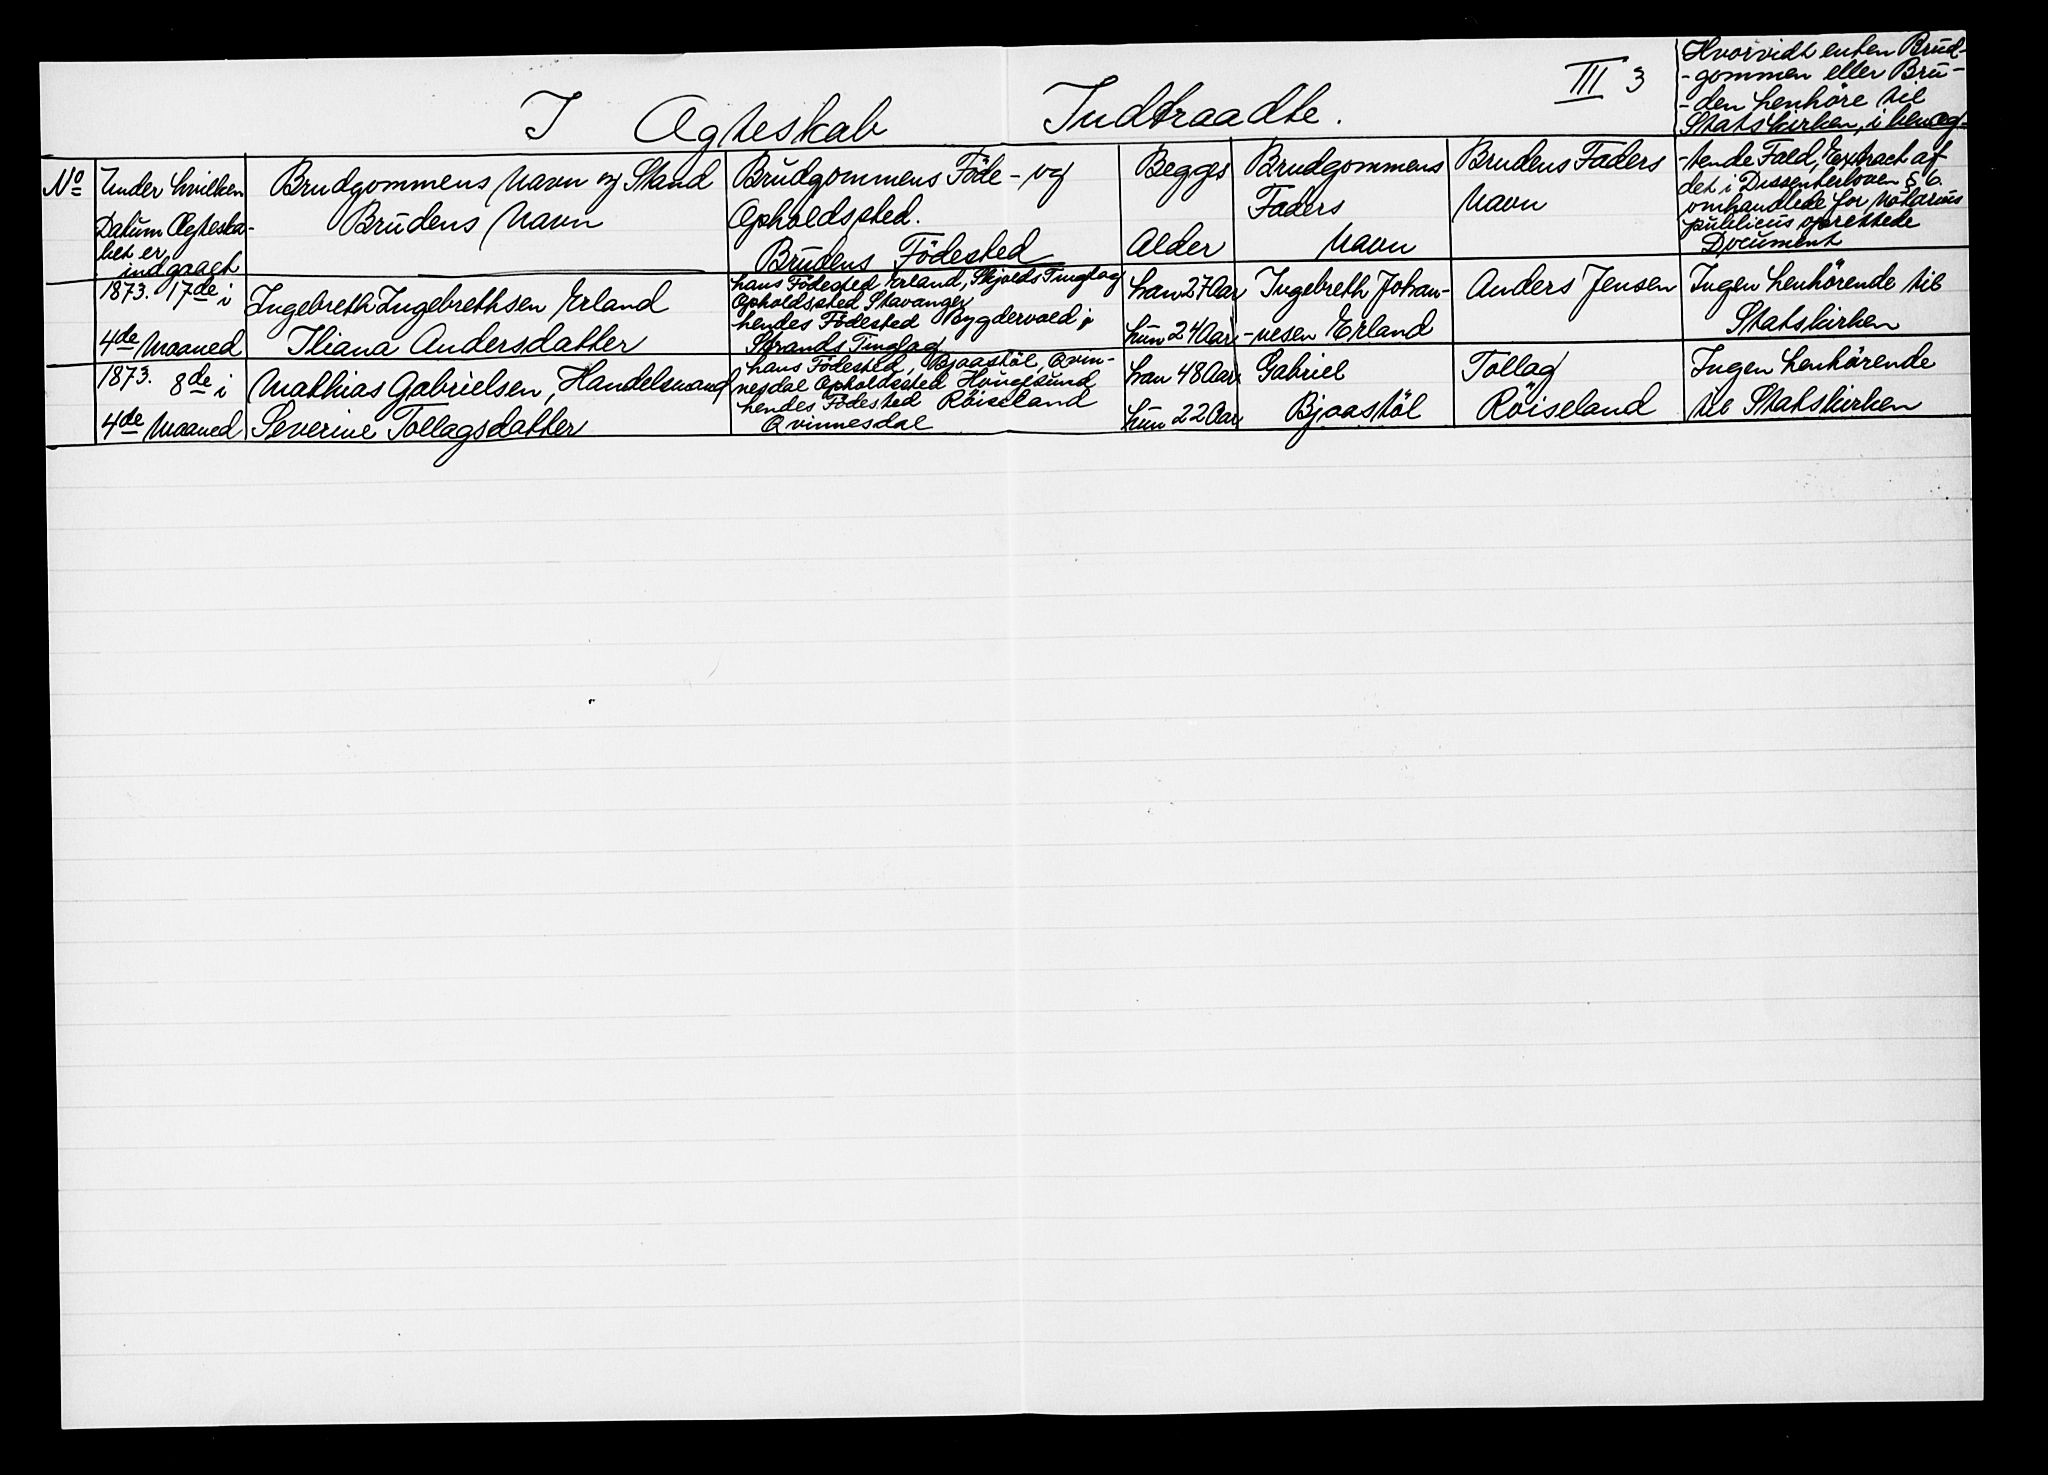 I Ægteskab Indtraadte.
III 3
Hvorvidt enten Brud-
-gommen eller Bru-
-den henhöre til
Statskirken, i benæg-
-tende Fald, Extract af
det i Dissenterloven § 6.
omhandlede for Notarius
publicus oprettede
Document
No
Under hvilken
Datum Ægteska-
bet er
indgaaet
Brudgommens Navn og Stand
Brudens Navn
Brudgommens Föde- og
Opholdssted.
Brudens Födested
Begges
Alder
Brudgommens
Faders
Navn
Brudens Faders
Navn
1873. 17de i
4de Maaned
Ingebreth Ingebrethsen Erland
Iliana Andersdatter
hans Födested Erland, Skjolds Tinglag
Opholdssted Stavanger
hendes Födested Bygdervold i
Strands Tinglag
han 27 Aar
hun 24 Aar
Ingebreth Johan-
-nesen Erland
Anders Jensen
Ingen henhörende til
Statskirken
1873. 8de i
4de Maaned
Mathias Gabrielsen, Handelsmand
Severine Tollagsdatter
hans Födested, Bjaastöl, Qvin-
nesdal Opholdssted Hougesund
hendes Födested Röiseland
Qvinnesdal
han 48 Aar
hun 22 Aar
Gabriel
Bjaastöl
Tollag
Röiseland
Ingen henhörende
til Statskirken